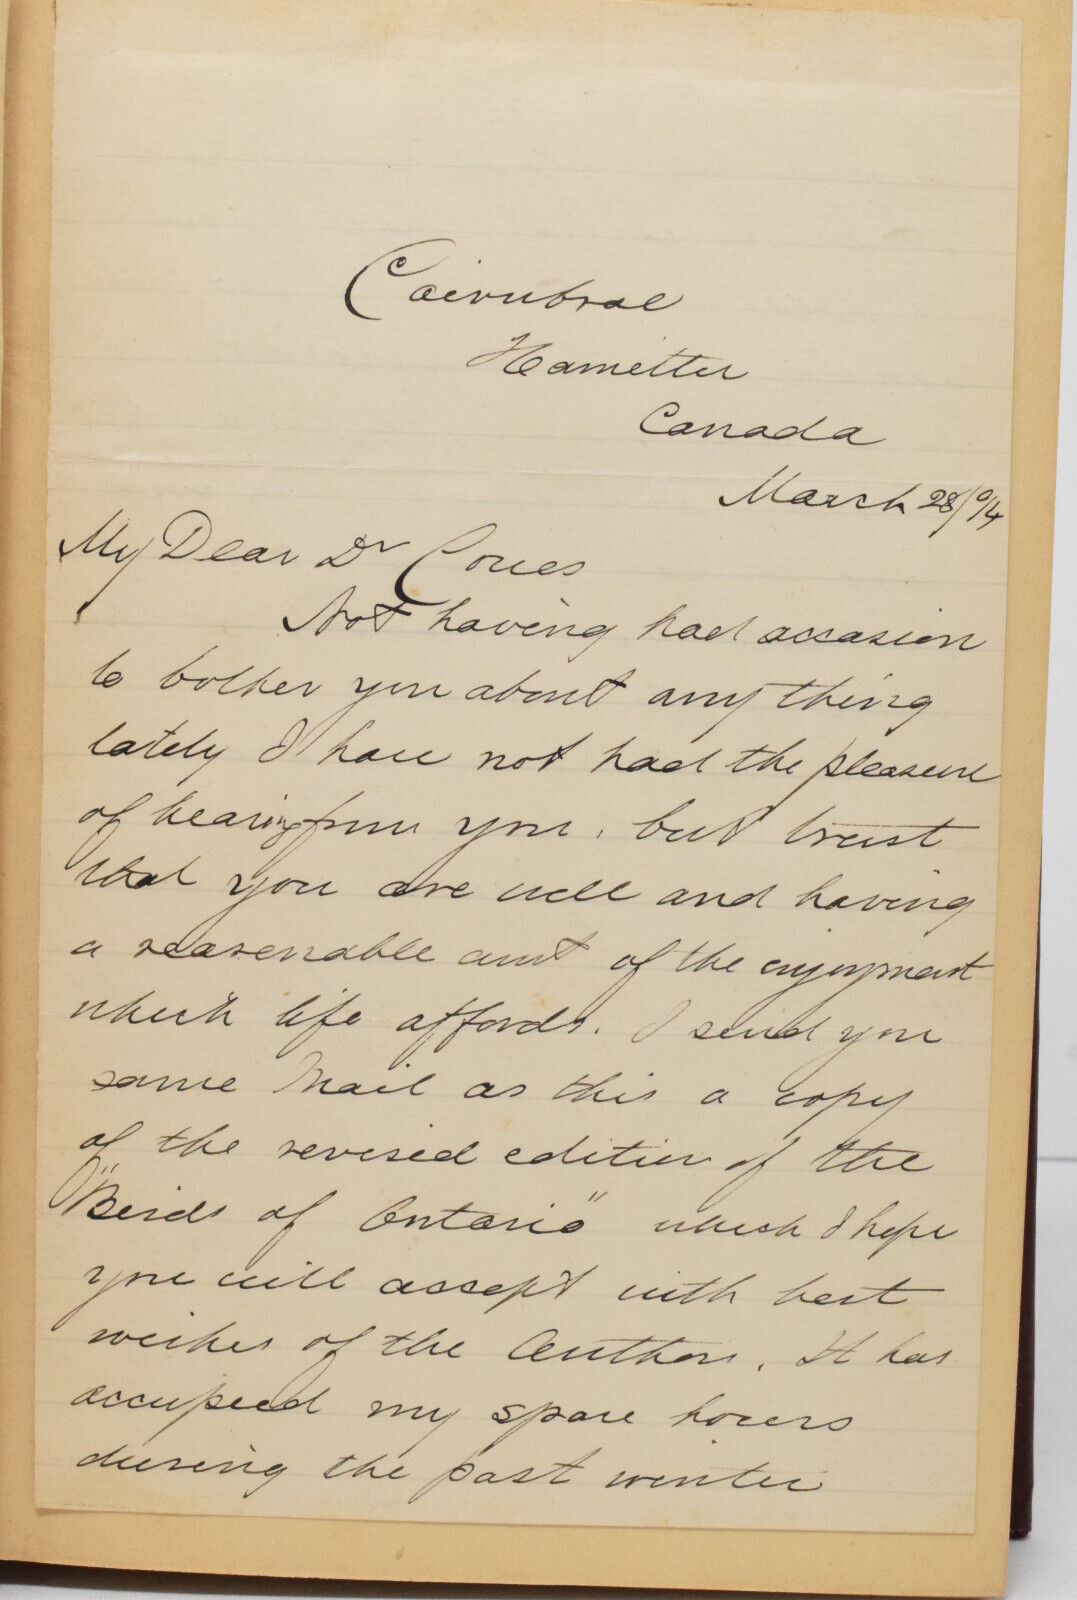 Cairnbrae
Hamilton
Canada
March 28/94
My Dear Dr Coues
Not having had occasion
to bother you about any thing
lately I have not had the pleasure
of hearing from you, but trust
that you are well and having
a reasonable amt of the enjoyment
which life affords. I send you
same Mail as this a copy
of the revised edition of the
"Birds of Ontario" which I hope
you will accept with best
wishes of the Author. It has
occupied my spare hours
during the past winter